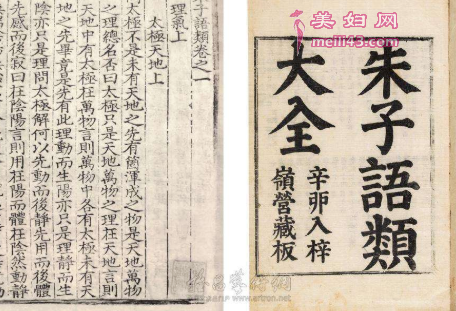 美妇网
meili43.com
朱子語類
大全
辛卯入梓
嶺營藏板
子語類卷之一
理氣上
太極天地上
太極不是未有天地之先有箇渾成之物是天地萬物
之理總名否曰太極只是天地萬物之理在天地言則
天地中有太極在萬物言則萬物中各有太極未有天
地之先畢竟是先有此理動而生陽亦只是理靜而生
陰亦只是理問太極解何以先動而後靜先用而後體
先感而後寂曰在陰陽言則用在陽而體在陰然動靜
www.artron.net